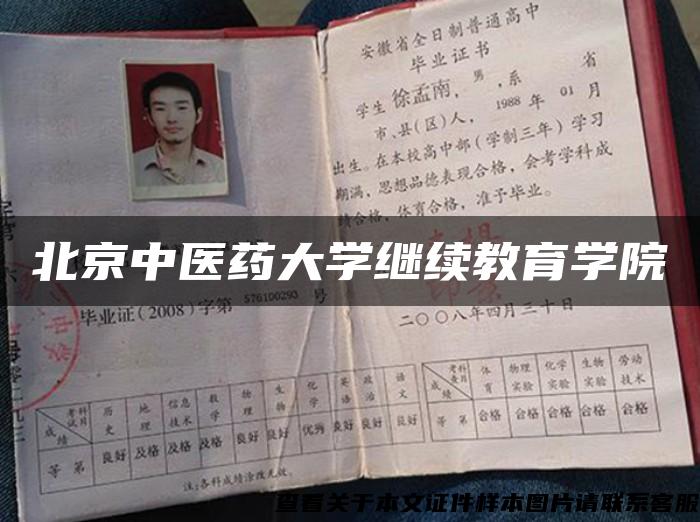 安徽省全日制普通高中
毕业证书
学生徐孟南，男，系 省
市、县(区)人，1988年01月
出生。在本校高中部(学制三年)学习
期满，思想品德表现合格，会考学科成
绩合格，体育合格，准予毕业。
北京中医药大学继续教育学院
毕业证(2008)字第576100293号
二〇〇八年四月三十日
成绩 考试科目 历史 地理 信息技术 数学 物理 生物 化学 英语 政治 语文
等第 良好 及格 及格 及格 良好 良好 优秀 良好 良好 良好
注:各科成绩涂改无效。
成绩 考查科目 体育 物理实验 化学实验 生物实验 劳动技术
等第 合格 合格 合格 合格 合格
查看关于本文证件样本图片请联系客服